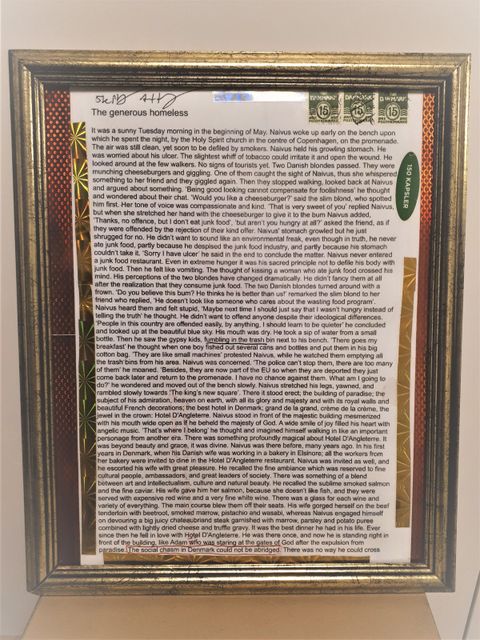 DANMARK DANMARK DANMARK
15 15 15
The generous homeless
150 KAPSLER
It was a sunny Tuesday morning in the beginning of May. Naivus woke up early on the bench upon
which he spent the night, by the Holy Spirit church in the centre of Copenhagen, on the promenade.
The air was still clean, yet soon to be defiled by smokers. Naivus held his growling stomach. He
was worried about his ulcer. The slightest whiff of tobacco could irritate it and open the wound. He
looked around at the few walkers. No signs of tourists yet. Two Danish blondes passed. They were
munching cheeseburgers and giggling. One of them caught the sight of Naivus, thus she whispered
something to her friend and they giggled again. Then they stopped walking, looked back at Naivus
and argued about something. 'Being good looking cannot compensate for foolishness' he thought
and wondered about their chat. 'Would you like a cheeseburger?' said the slim blond, who spotted
him first. Her tone of voice was compassionate and kind. 'That is very sweet of you' replied Naivus
but when she stretched her hand with the cheeseburger to give it to the bum Naivus added,
'Thanks, no offence, but I don't eat junk food', 'but aren't you hungry at all?' asked the friend, as if
they were offended by the rejection of their kind offer. Naivus' stomach growled but he just
shrugged for no. He didn't want to sound like an environmental freak, even though in truth, he never
ate junk food, partly because he despised the junk food industry, and partly because his stomach
couldn't take it. 'Sorry I have ulcer' he said in the end to conclude the matter. Naivus never entered
a junk food restaurant. Even in extreme hunger it was his sacred principle not to defile his body with
junk food. Then he felt like vomiting. The thought of kissing a woman who ate junk food crossed his
mind. His perceptions of the two blondes have changed dramatically. He didn't fancy them at all
after the realization that they consume junk food. The two Danish blondes turned around with a
frown. 'Do you believe this bum? He thinks he is better than us!' remarked the slim blond to her
friend who replied, 'He doesn't look like someone who cares about the wasting food program'.
Naivus heard them and felt stupid, 'Maybe next time I should just say that I wasn't hungry instead of
telling the truth' he thought. He didn't want to offend anyone despite their ideological differences.
'People in this country are offended easily, by anything, I should learn to be quieter' he concluded
and looked up at the beautiful blue sky. His mouth was dry. He took a sip of water from a small
bottle. Then he saw the gypsy kids, fumbling in the trash bin next to his bench. 'There goes my
breakfast' he thought when one boy fished out several cans and bottles and put them in his big
cotton bag. 'They are like small machines' protested Naivus, while he watched them emptying all
the trash bins from his area. Naivus was concerned. 'The police can't stop them, there are too many
of them' he moaned. 'Besides, they are now part of the EU so when they are deported they just
come back later and return to the promenade. I have no chance against them. What am I going to
do?' he wondered and moved out of the bench slowly. Naivus stretched his legs, yawned, and
rambled slowly towards 'The king's new square'. There it stood erect; the building of paradise; the
subject of his admiration, heaven on earth, with all its glory and majesty and with its royal walls and
beautiful French decorations; the best hotel in Denmark; grand de la grand, crème de la crème, the
jewel in the crown: Hotel D'Angleterre. Naivus stood in front of the majestic building mesmerized
with his mouth wide open as if he beheld the majesty of God. A wide smile of joy filled his heart with
angelic music. 'That's where I belong' he thought and imagined himself walking in like an important
personage from another era. There was something profoundly magical about Hotel D'Angleterre. It
was beyond beauty and grace, it was divine. Naivus was there before, many years ago. In his first
years in Denmark, when his Danish wife was working in a bakery in Elsinore; all the workers from
her bakery were invited to dine in the Hotel D'Angleterre restaurant. Naivus was invited as well, and
he escorted his wife with great pleasure. He recalled the fine ambience which was reserved to fine
cultural people, ambassadors, and great leaders of society. There was something of a blend
between art and Intellectualism, culture and natural beauty. He recalled the sublime smoked salmon
and the fine caviar. His wife gave him her salmon, because she doesn't like fish, and they were
served with expensive red wine and a very fine white wine. There was a glass for each wine and
variety of everything. The main course blew them off their seats. His wife gorged herself on the beef
tenderloin with beetroot, smoked marrow, pistachio and wasabi, whereas Naivus engaged himself
on devouring a big juicy chateaubriand steak garnished with marrow, parsley and potato puree
combined with lightly dried cheese and truffle gravy. It was the best dinner he had in his life. Ever
since then he fell in love with Hotel D'Angleterre. He was there once, and now he is standing right in
front of the building, like Adam who was staring at the gates of God after the expulsion from
paradise. The social chasm in Denmark could not be abridged. There was no way he could cross